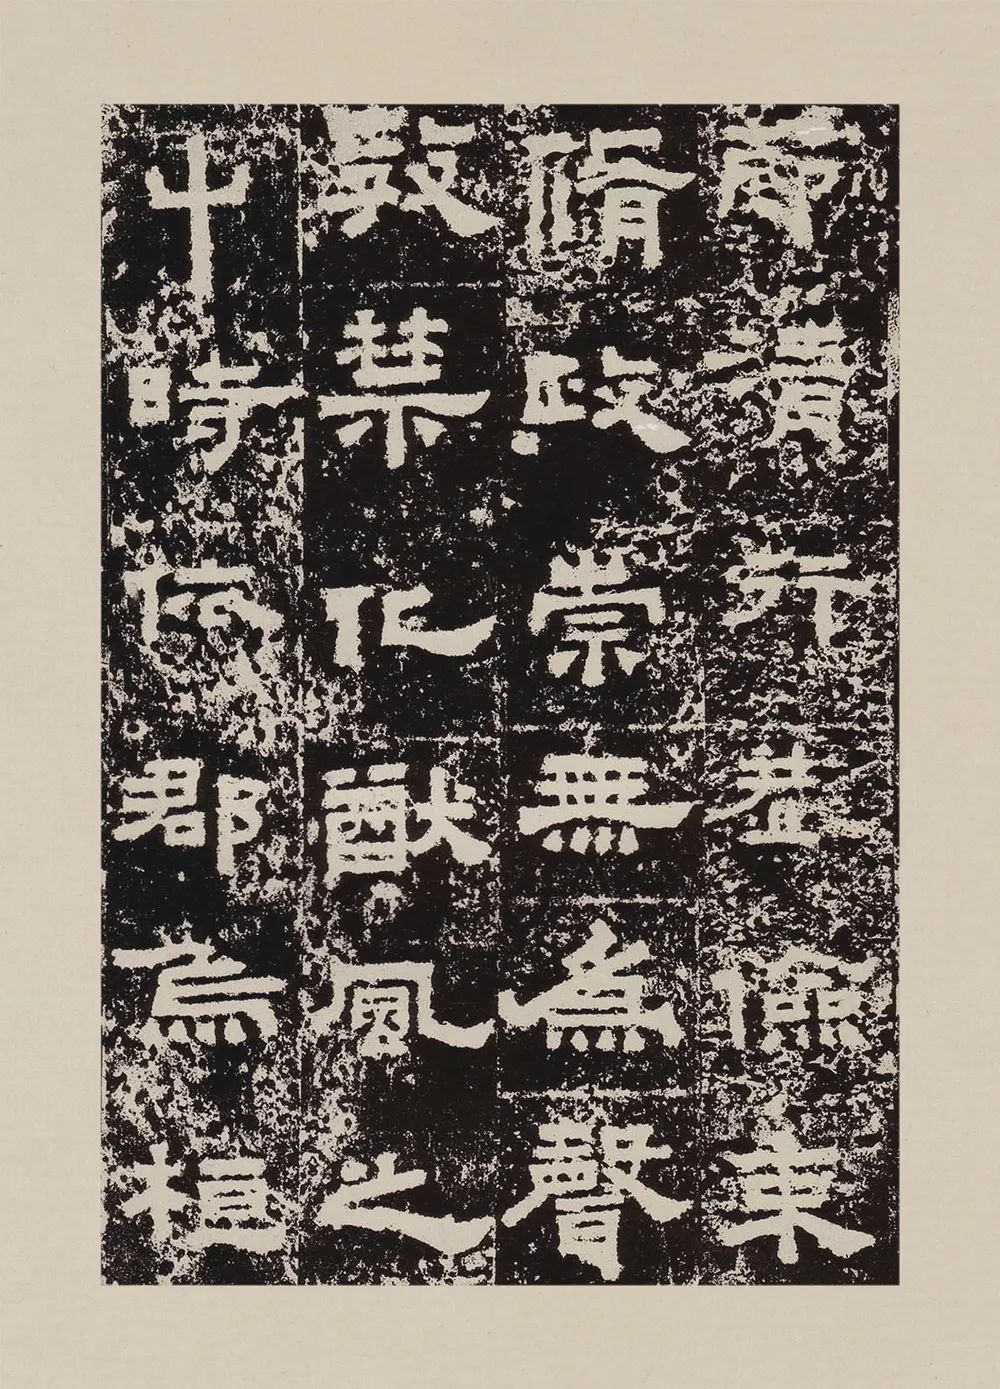 節清行恭儉束
脩政崇無為聲
教禁化猷風之
中時依郡烏桓